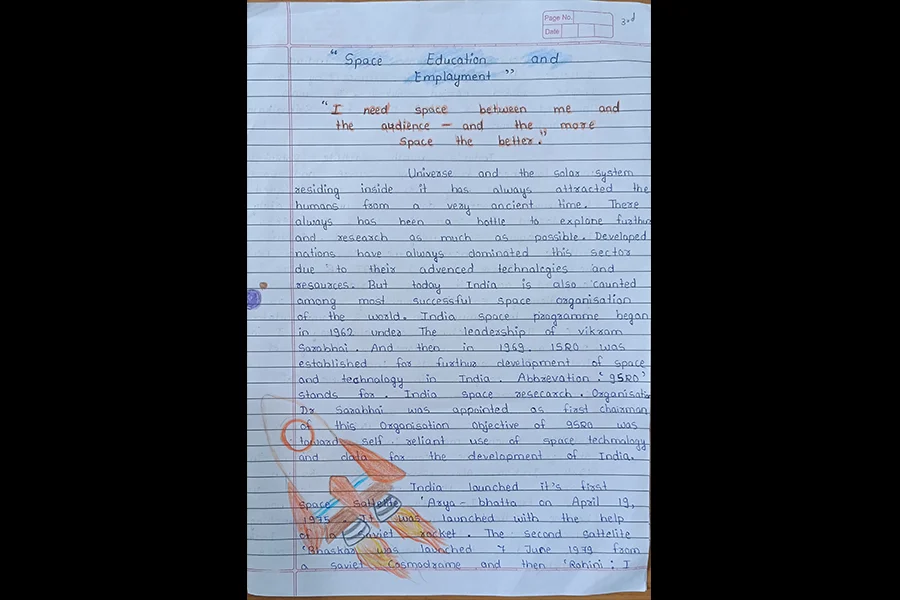 Page No.
Date
3rd
" Space Education and
Employment "
" I need space between me and
the audience – and the more
space the better."
Universe and the solar system
residing inside it has always attracted the
humans from a very ancient time. There
always has been a battle to explone furthur
and research as much as possible. Developed
nations have always dominated this sector
due to their advenced technalegies and
resources. But today India is also counted
among most successful space organisation
of the world. India space programme began
in 1962 under The leadership of vikram
Sarabhai. And then in 1969. ISRO was
established for furthur development of space
and technology in India. Abbrevation 'ISRO'
stands for. India space resecarch. Organisation
Dr Sarabhai was appointed as first chairman
of this Organisation Objective of ISRO was
toward self reliant use of space techmalogy
and data for the development of India.
India launched it's first
space sattelite 'Arya-bhatta on April 19,
1975. It was launched with the help
of a Soviet rocket. The second sattelite
'Bhaskar was launched 7 June 1979 from
a saviet Cosmodrame and then 'Rohini: I